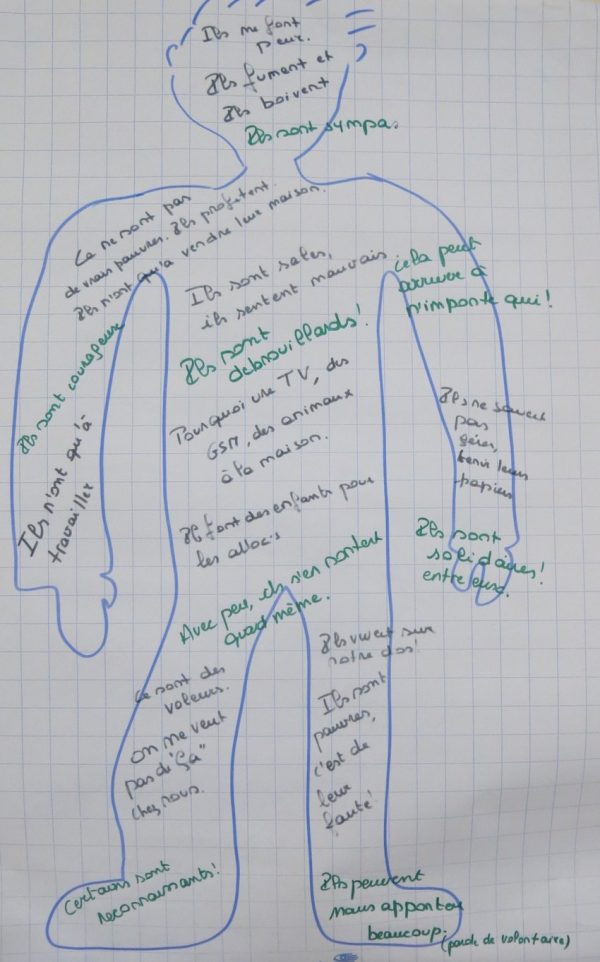 Ils me font
peur.
Ils fument et
Ils boivent
Ils sont sympa.
Ce ne sont pas
de vrais pauvres. Ils profitent.
Ils n'ont qu'à vendre leur maison.
Ils sont sales,
ils sentent mauvais
cela peut
arriver à
n'importe qui !
Ils sont courageux
Ils sont
débrouillards !
Ils n'ont qu'à
travailler
Pourquoi une TV, des
GSM, des animaux
à la maison.
Ils ne savent
pas
gérer,
tenir leurs
papiers
Ils font des enfants pour
les alloc's
Ils sont
solidaires !
entre eux.
Avec peu, ils s'en sortent
quand même.
Ce sont des
voleurs.
on ne veut
pas de "ça"
chez nous.
Ils vivent sur
notre dos !
Ils sont
pauvres,
c'est de
leur
faute !
Certains sont
reconnaissants !
Ils peuvent
nous apporter
beaucoup.
(parole de volontaire)